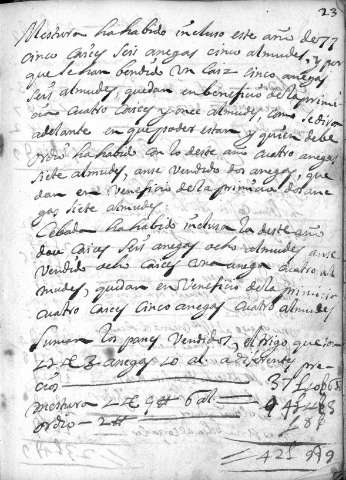 23
Mestura ha habido incluso este año de 77
cinco Caices seis anegas cinco almudes, y por
que se han bendido un Caiz cinco anegas
seis almudes, quedan en beneficio de la primi
cia cuatro Caices y once almudes, como se dira
adelante en que poder estan y quien debe
Ordio ha habido con lo deste año cuatro anegas
siete almudes, anse vendido dos anegas, que
dan en veneficio de la primicia dos ane
gas siete almudes
Cebada ha habido inclusa la deste año
doce Caices seis anegas ocho almudes, anse
vendido ocho Caices una anega cuatro al
mudes, quedan en veneficio de la primicia
cuatro Caices cinco anegas cuatro almudes
Suman los panes vendidos, el trigo que son
3 anegas 10 al a diferentes pre
cios
mestura 6 al
ordio